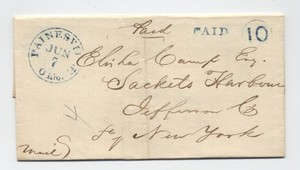 PAINESVILLE
JUN
7
Ohio.
Paid
PAID
10
Elisha Camp Esq.
Sackets Harbour
Jefferson Co
New York
mail